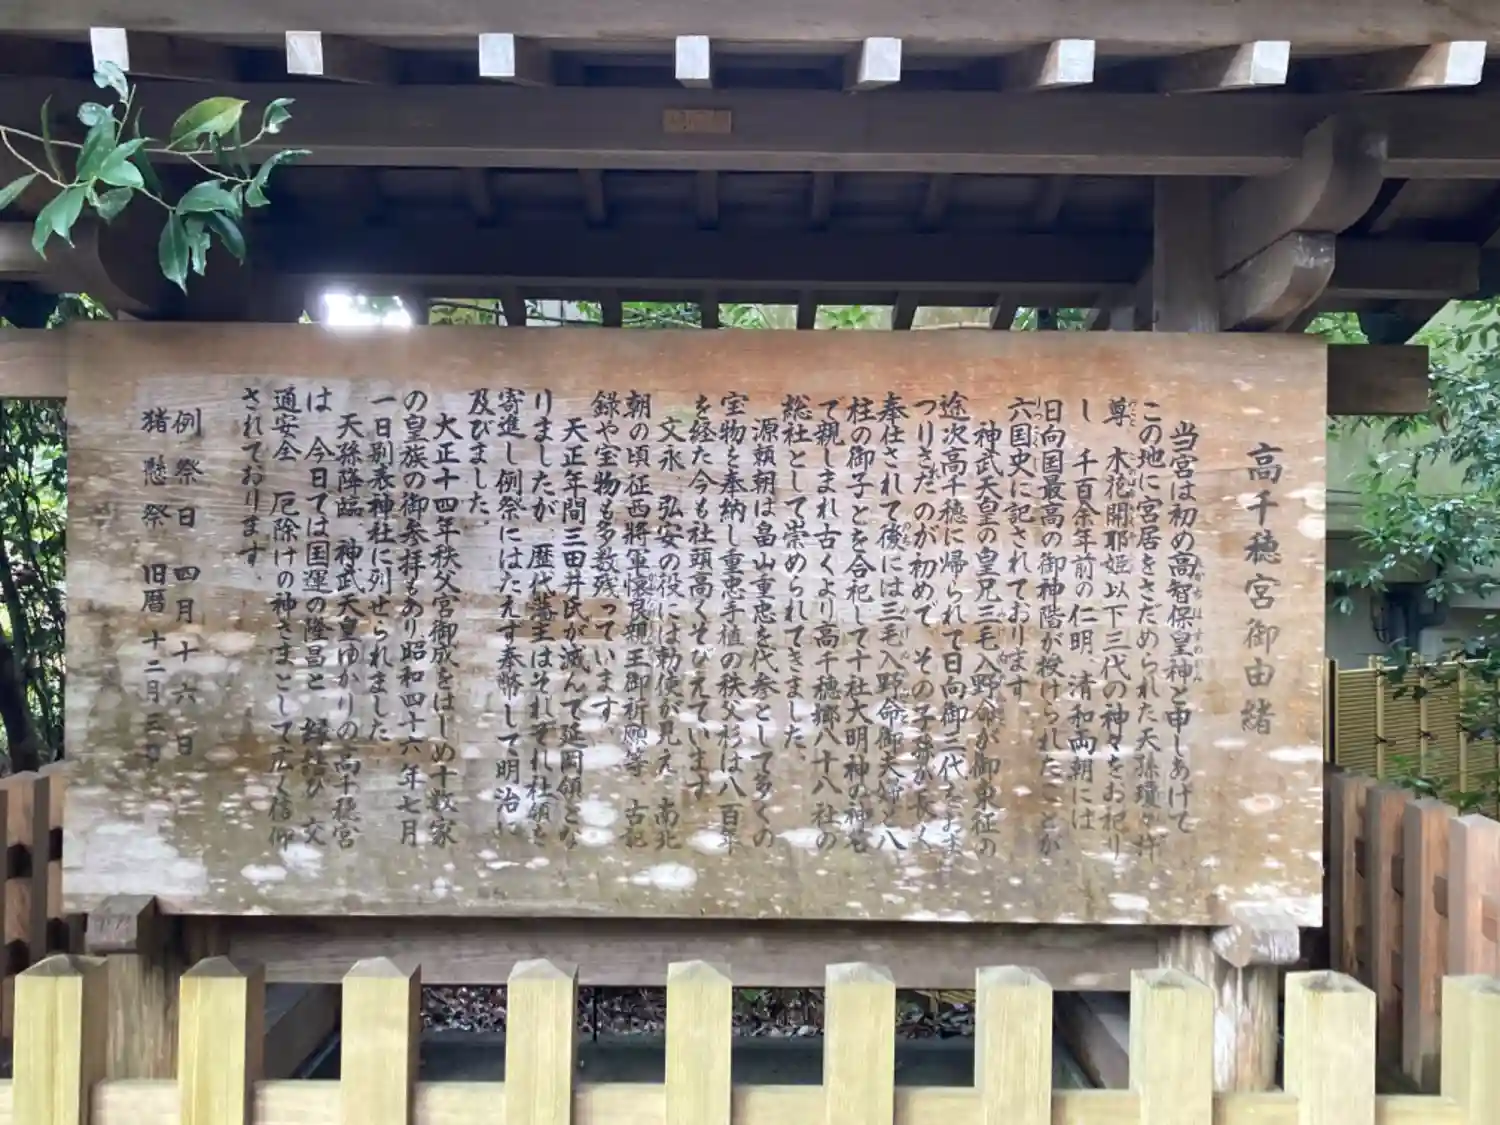 高千穂宮御由緒
当宮は初め高智保皇神と申しあげて
この地に宮居をさだめられた天孫瓊々杵
尊 木花開耶姫以下三代の神々をお祀り
し 千百余年前の仁明、清和両朝には
日向国最高の御神階が授けられたことが
六国史に記されております
神武天皇の皇兄三毛入野命が御東征の
途次高千穂に帰られて日向御三代をおま
つりされたのが初めで その子孫が長く
奉仕されて後には三毛入野命御夫婦と八
柱の御子とを合祀して十社大明神の神号
で親しまれ古くより高千穂郷八十八社の
総社として崇められてきました、
源頼朝は畠山重忠を代参として多くの
宝物を奉納し重忠手植の秩父杉は八百年
を経た今も社頭高くそびえています
文永、弘安の役には勅使が見え 南北
朝の頃征西将軍懐良親王御祈願等 古記
録や宝物も多数残っています、
天正年間三田井氏が滅んで延岡領とな
りましたが、歴代藩主はそれぞれ社領を
寄進し例祭にはたえず奉幣して明治に
及びました。
大正十四年秩父宮御成をはじめ十数家
の皇族の御参拝もあり昭和四十六年七月
一日別表神社に列せられました
天孫降臨、神武天皇ゆかりの高千穂宮
は 今日では国運の隆昌と 縁結び 交
通安全 厄除けの神さまとして広く信仰
されております、
例祭日 四月十六日
猪懸祭 旧暦十二月三日